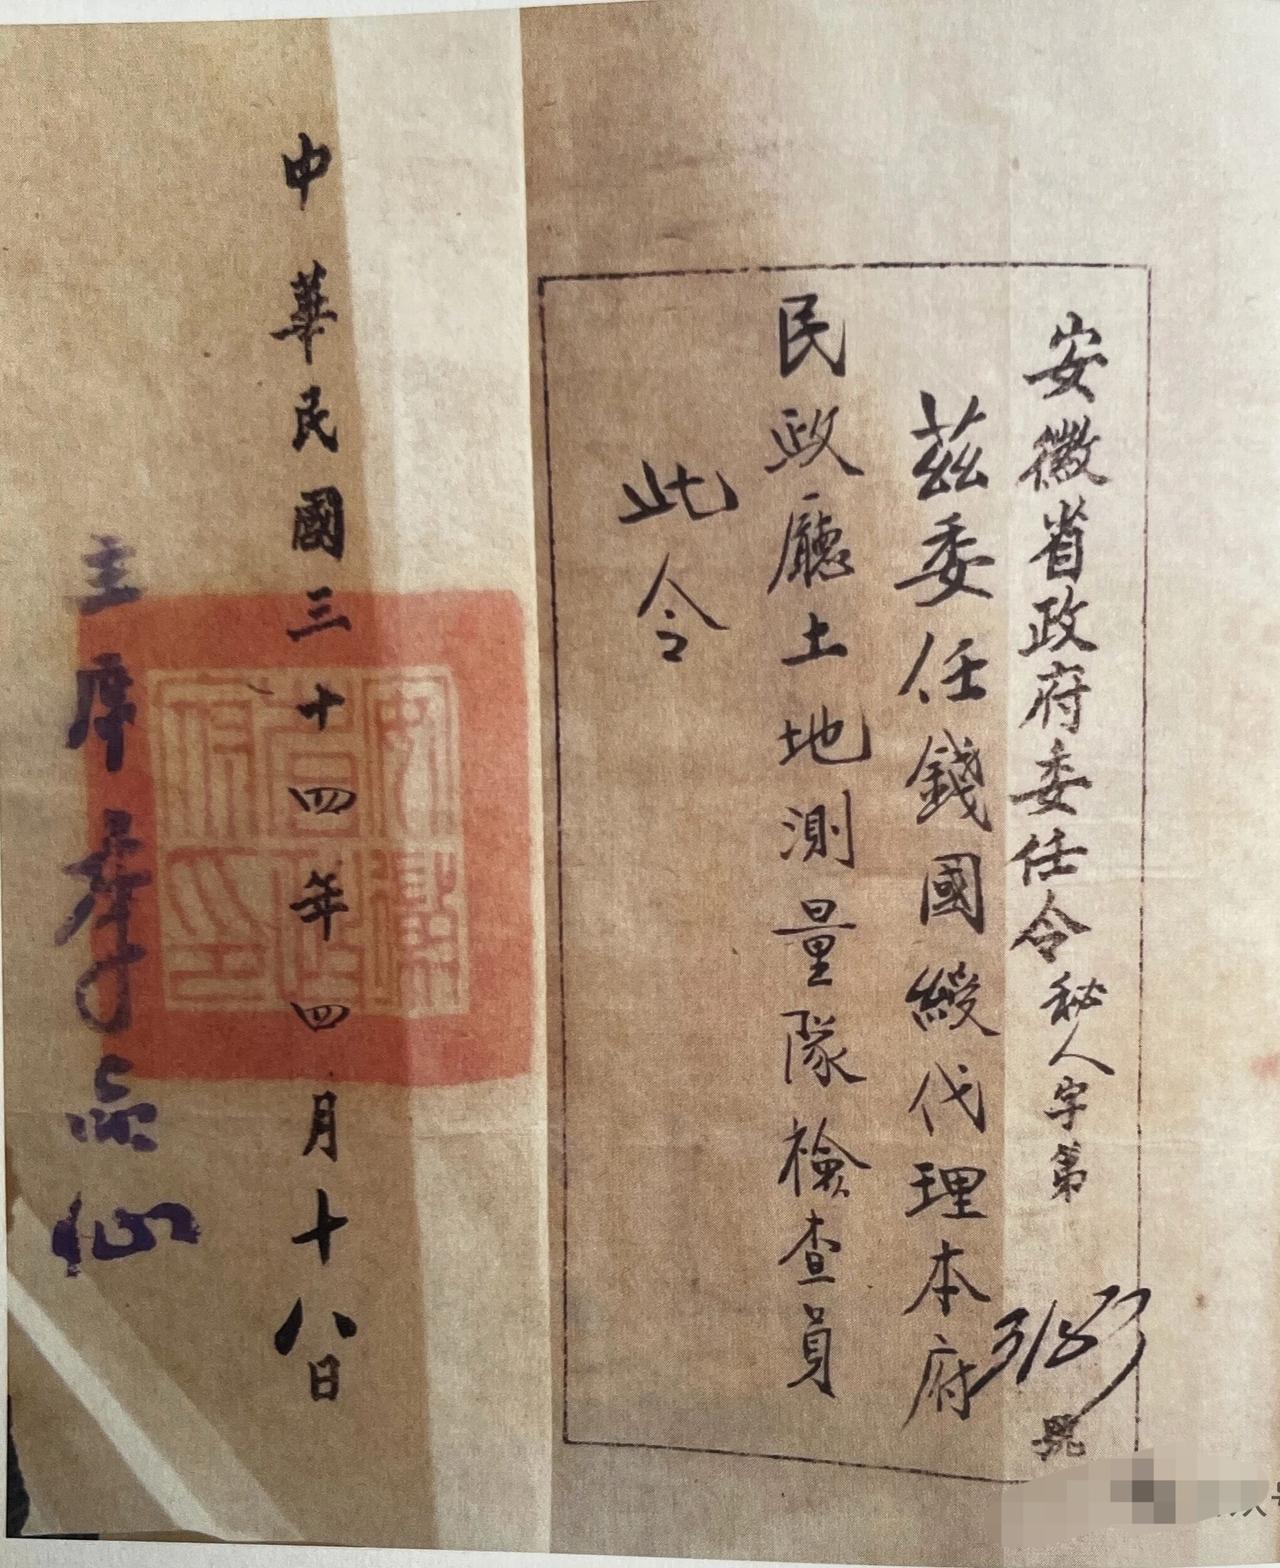 安徽省政府委任令秘人字第3183號
茲委任錢國綬代理本府
民政廳土地測量隊檢查員
此令
中華民國三十四年四月十八日
主席李品仙